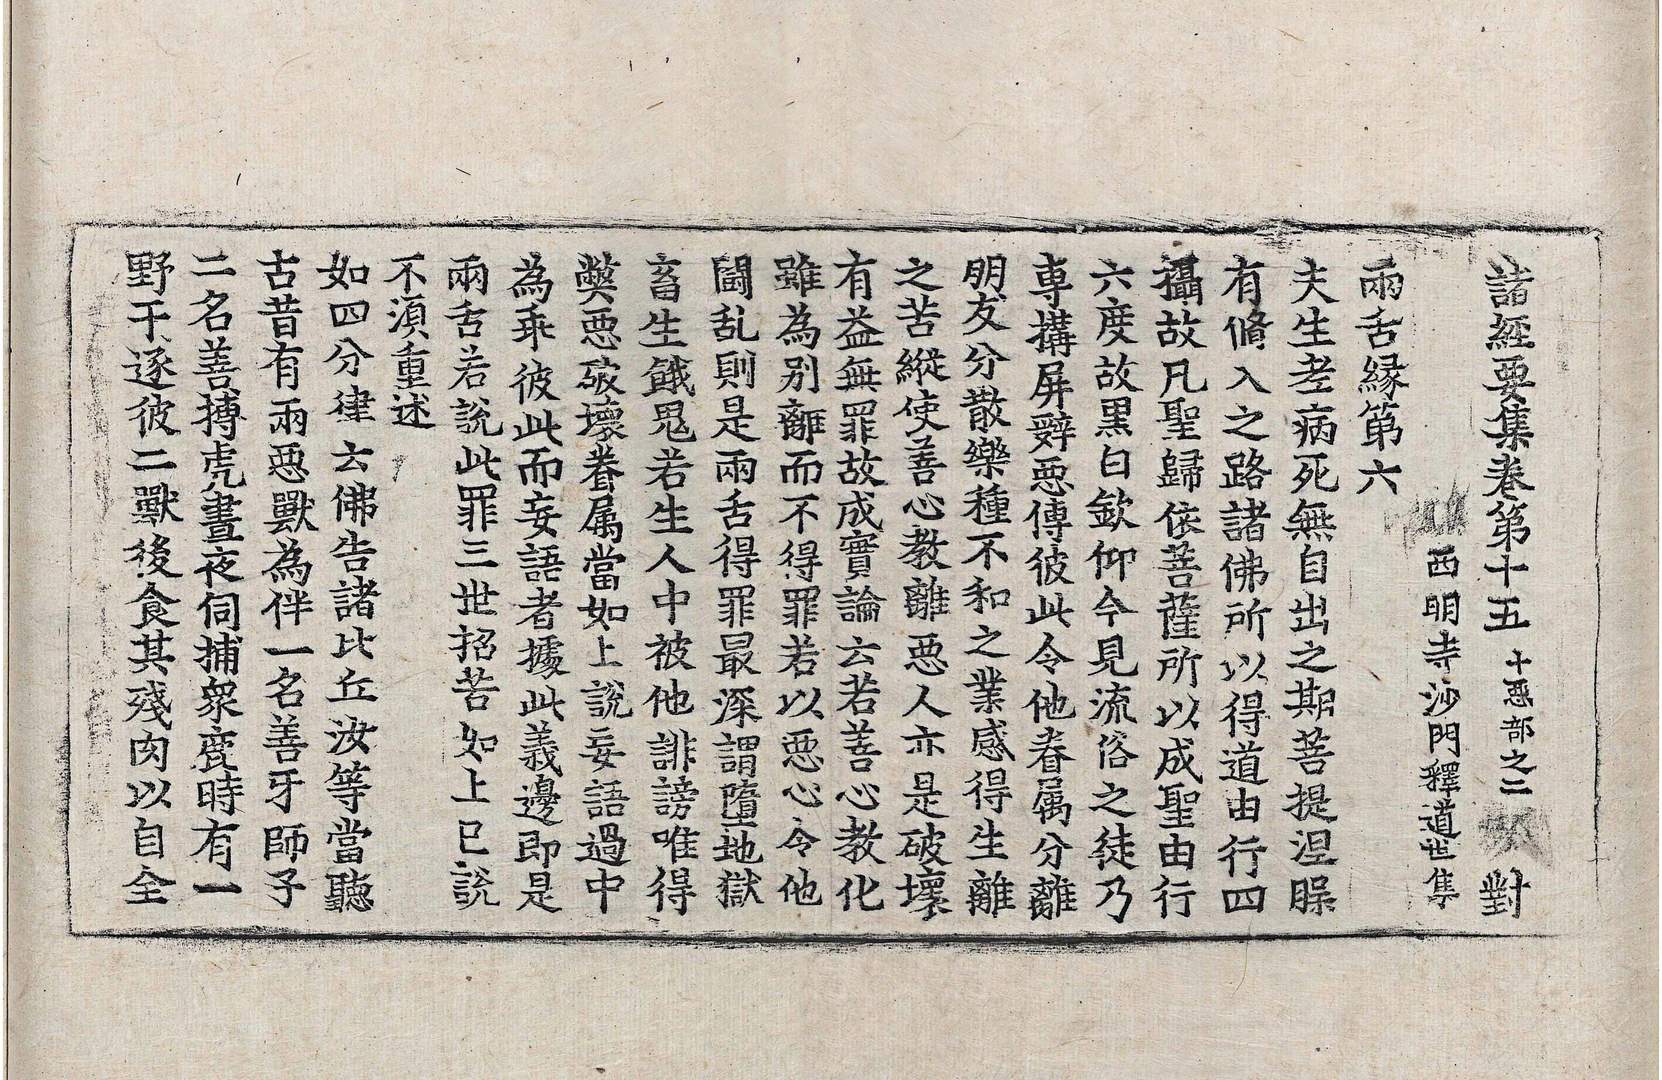 諸經要集卷第十五 十惡部之二 對
西明寺沙門釋道世集
兩舌縁第六
夫生老病死無自出之期菩提涅槃
有脩入之路諸佛所以得道由行四
攝故凡聖歸依菩薩所以成聖由行
六度故黒白欽仰今見流俗之徒乃
専搆屏辭惡傳彼此令他眷属分離
朋友分散樂種不和之業感得生離
之苦縱使善心教離惡人亦是破壞
有益無罪故成實論云若善心教化
雖為別離而不得罪若以惡心令他
鬪乱則是兩舌得罪最深謂墮地獄
畜生餓鬼若生人中被他誹謗唯得
弊惡破壞眷属當如上說妄語過中
為乖彼此而妄語者據此義邊即是
兩舌若說此罪三世招苦如上已說
不湏重述
如四分律云佛告諸比丘汝等當聽
古昔有兩惡獸為伴一名善牙師子
二名善搏虎晝夜伺捕衆鹿時有一
野干逐彼二獸後食其殘肉以自全